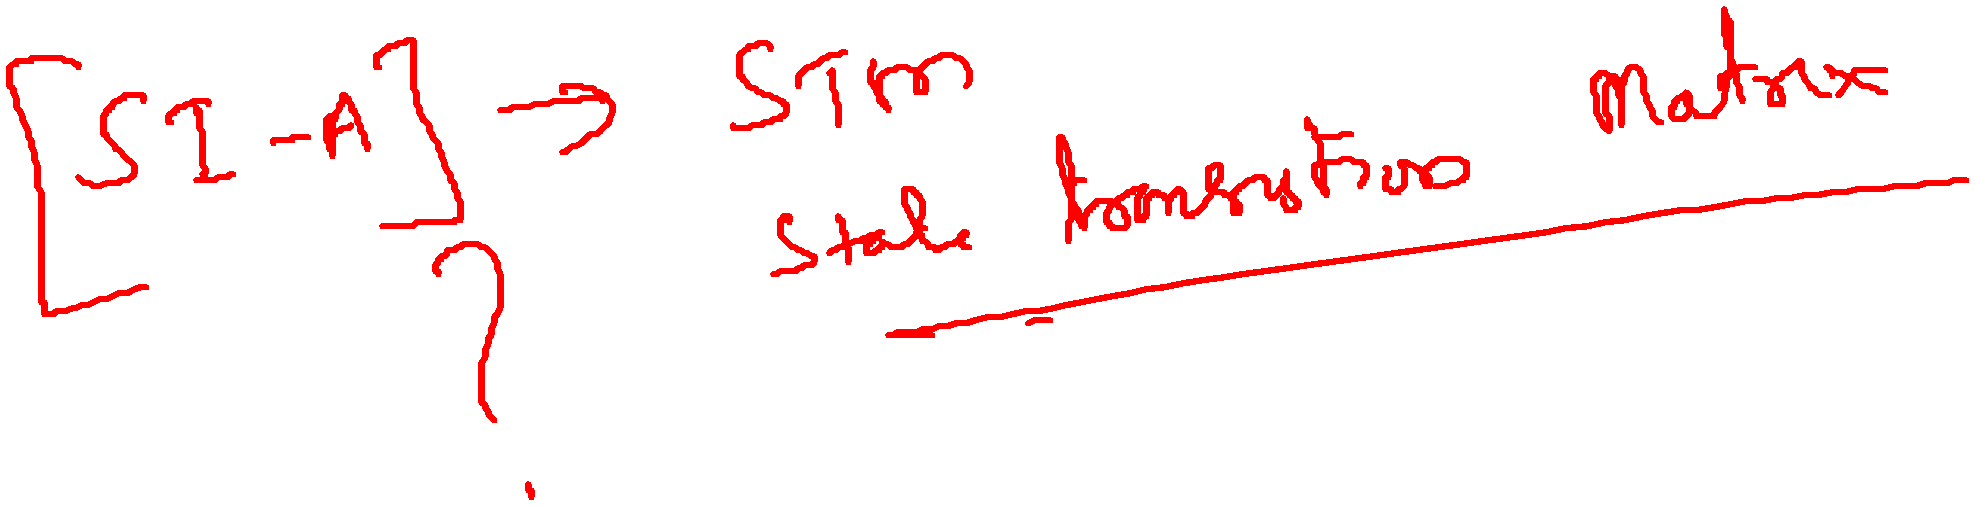 [SI-A] → STM
State transition Matrix
?